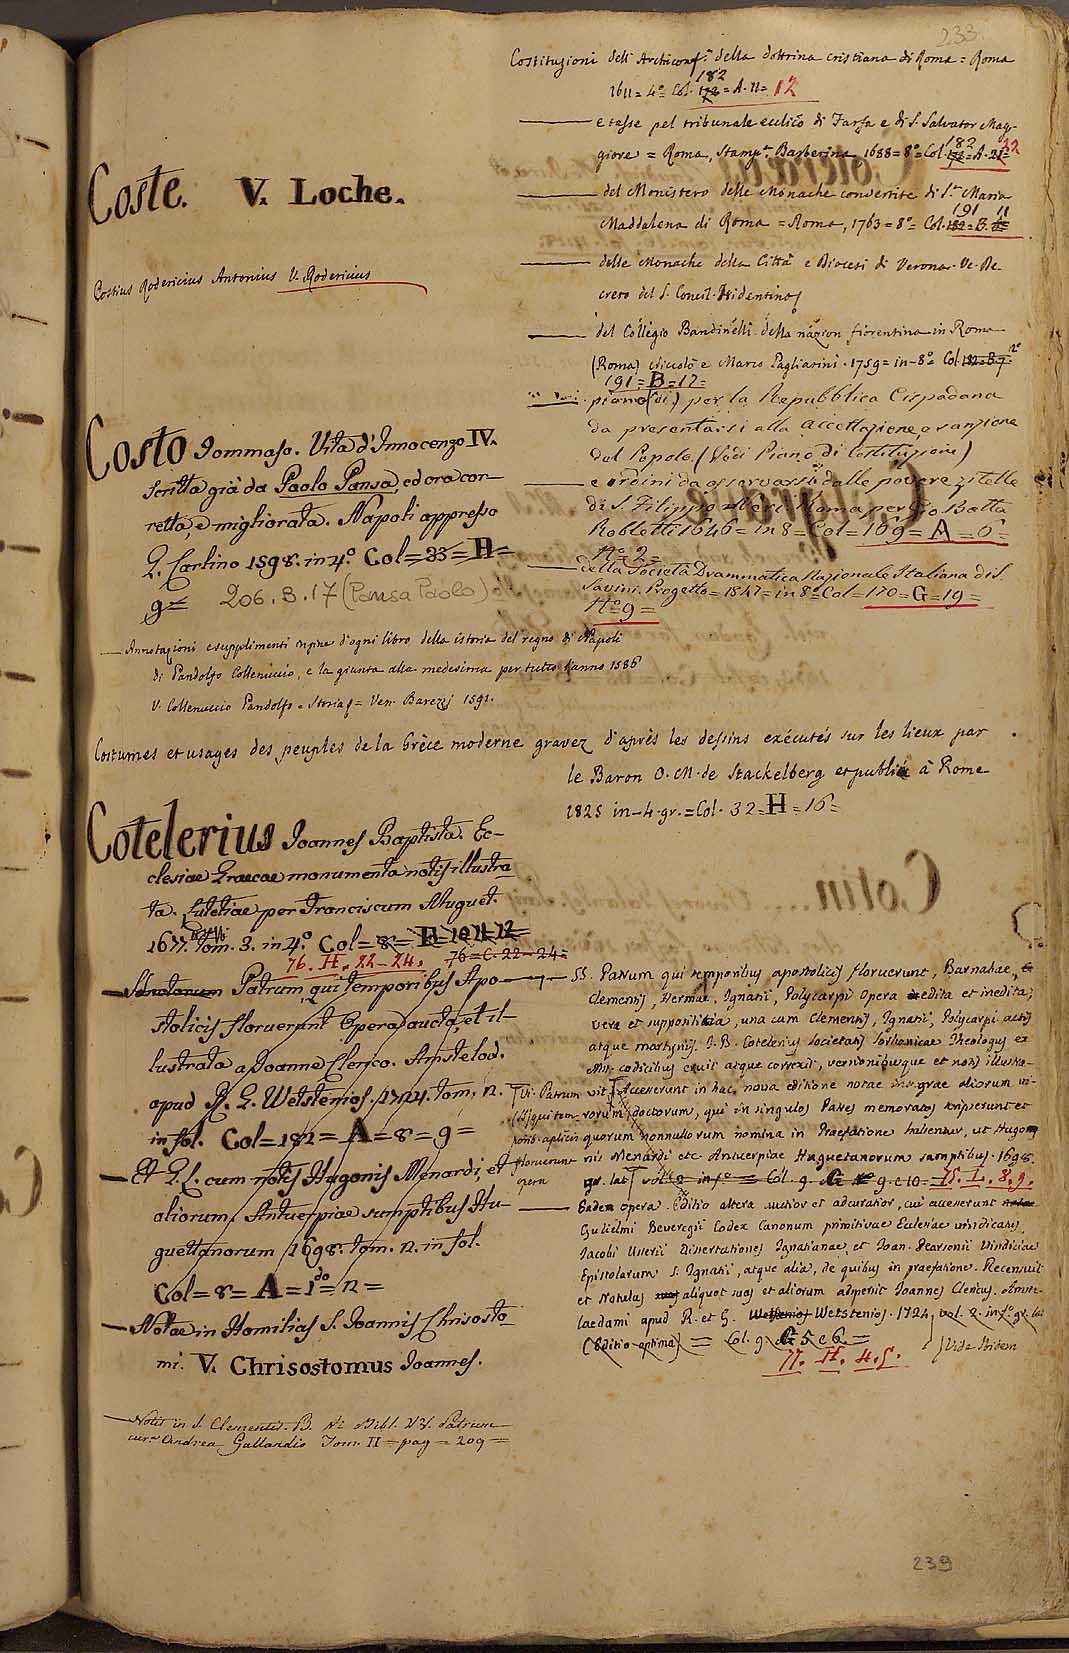 233.
Costituzioni dell'Archiconf.ª della dottrina cristiana di Roma = Roma
1611 = 4º Col. 172 182 = A. 11 = 12
——— e tasse pel tribunale ecclico di Farfa e di S. Salvator Mag-
giore = Roma, Stamp.ª Barberina 1688 = 8º = Col. 182 = A. 21 = 32
——— del Monistero delle Monache convertite di S.ta Maria
Maddalena di Roma = Roma, 1763 = 8º = Col. 182 191 = B. 11
——— delle Monache della Città e Diocesi di Verona. Ve. De
creto del S. Concil. Tridentino
——— del Collegio Bandinelli della nazion fiorentina in Roma
(Roma) Niccolò e Marco Pagliarini. 1759 = in-8º = Col 182 = B. 7. 12
191 = B = 17 =
——— piano (di) per la Repubblica Cispadana
da presentarsi alla accettazione, o sanzione
del Popolo. (Vedi Piano di Costituzione)
——— e ordini da osservarsi dalle povere zitelle
di S. Filippo Neri Roma per Gio Batta
Robletti 1646 = in 8 = Col = 169 = A = 6 =
Nº 2 =
——— della Società Drammatica Nazionale Italiana di S.
Savini. Progetto = 1847 = in 8º = Col = 170 = G = 19 =
Nº 9 =
Coste. V. Loche.
Costius Rodericius Antonius V. Rodericius
Costo Tommaso. Vita d'Innocenzo IV.
scritta già da Paolo Pansa, ed ora cor-
retta, e migliorata. Napoli appresso
G. Carlino 1598. in 4º. Col = 33 = H =
9 = 206. B. 17 (Pansa Paolo)
— Annotazioni e supplimenti in fine d'ogni libro della istoria del regno di Napoli
di Pandolfo Collenuccio, e la giunta alla medesima per tutto l'anno 1586
V. Collenuccio Pandolfo = Storia = Ven. Barezzi 1591.
Costumes et usages des peuples de la Grèce moderne gravez d'après les dessins exécutés sur les lieux par
le Baron O. M. de Stackelberg et publié à Rome
1825 in-4. gr. = Col. 32 = H = 16 =
Cotelerius Joannes Baptista. Ec-
clesiae Graecae monumenta notis illustra
ta. Lutetiae per Franciscum Muguet.
1677. Tom. 3. in 4º. Col = 8 = E = 10 11 12 =
76. H. 22 – 24. 76 = C. 22 – 24 =
— Patrum, qui temporibus Apo-
stolicis floruerunt Opera aucta, et il-
lustrata a Joanne Clerico. Amstelod.
apud R. G. Wetstenios. 1724. tom. 2.
in fol. Col = 182 = A = 8 = 9 =
— Et G. L. cum notis Hugonis Menardi, et
aliorum. Antuerpiae sumptibus Hu-
guettanorum 1698. tom. 2. in fol.
Col = 8 = A = 1 = 2 =
— Notae in Homilias S. Joannis Chrisosto
mi. V. Chrisostomus Joannes.
— Notis in S. Clementis. B. Vi Bibl. VV. Patrum
cur.e Andrea Gallandio Tom. II = pag = 209 =
SS. Patrum qui temporibus apostolicis floruerunt, Barnabae,
Clementis, Hermae, Ignatii, Polycarpi Opera edita et inedita,
vera et supposititia, una cum Clementis, Ignatii, Polycarpi actis
atque martyriis. J. B. Cotelerius Societatis Sorbonicae Theologus ex
Mss. codicibus eruit atque correxit, versionibusque et notis illustra-
vit. Accesserunt in hac nova editione notae integrae aliorum vi-
rorum doctorum, qui in singulos Patres memoratos scripserunt et
quorum nonnullorum nomina in Praefatione habentur, ut Hugo
nis Menardi etc Antuerpiae Huguetanorum sumptibus. 1698.
gr. lat. vol. 2 in fº = Col. 9. 9. e 10. = 75. L. 8. 9.
Vi. Patrum
(SS) qui tem-
porib. aplicis
floruerunt
opera
— Eadem opera. Editio altera auctior et adcuratior, cui accesserunt
Gulielmi Beveregii Codex Canonum primitivae Eclesiae vindicatus,
Jacobi Usserii Dissertationes Ignatianae, et Joan. Pearsonii Vindiciae
Epistolarum S. Ignatii, atque alia, de quibus in praefatione. Recensuit
et Notulas aliquot suas et aliorum adspersit Joannes Clericus. Amste-
laedami apud R. et G. Wetstenios. 1724, vol. 2. in fº. gr. lat
(Editio optima) = Col. 9 5 e 6. = Vide ibidem
77. H. 4. 5.
239